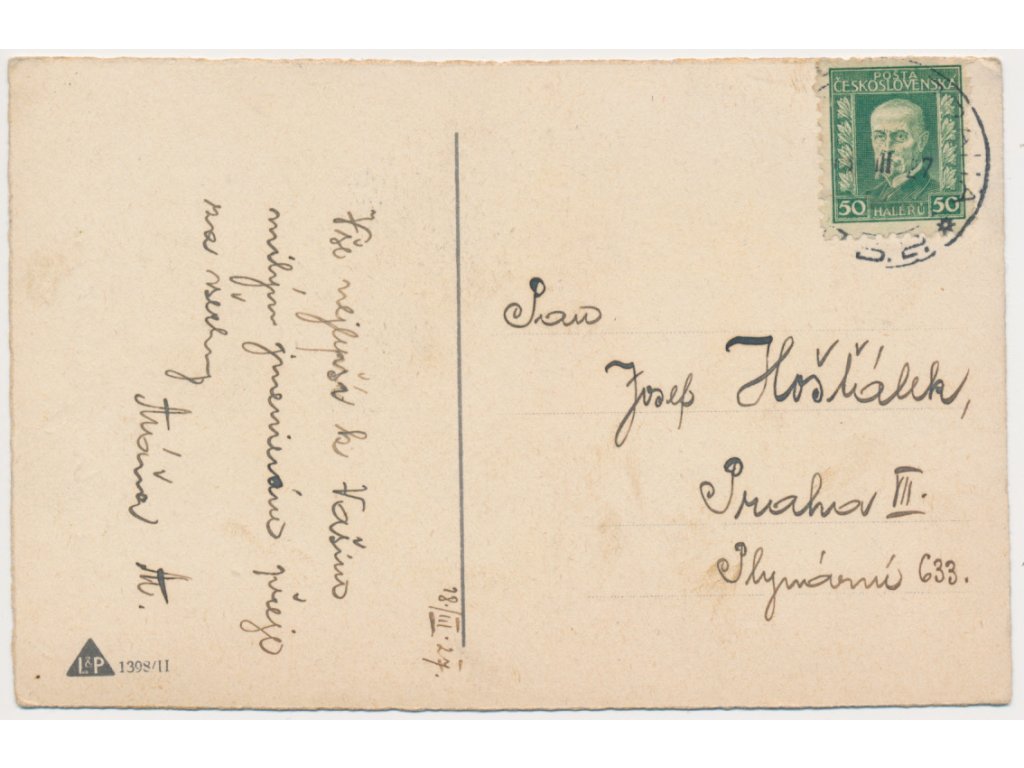 Vše nejlepší k Vašim
milým jmeninám přeje
za všechny
Máňa M.
18./III. 27.
L&P 1398/II
POŠTA
ČESKOSLOVENSKÁ
50 HALÉŘŮ 50
III 27
Pan
Josef Hošťálek,
Praha VII.
Plynární 633.